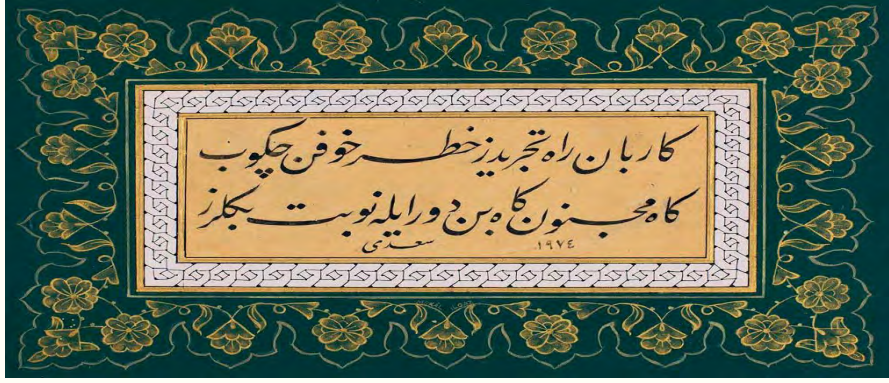 كاربان راه تجريدز خطر خوفن چكوب
كاه مجنون كاه بن دور ايله نوبت بكلرز
١٩٧٤ سعدى